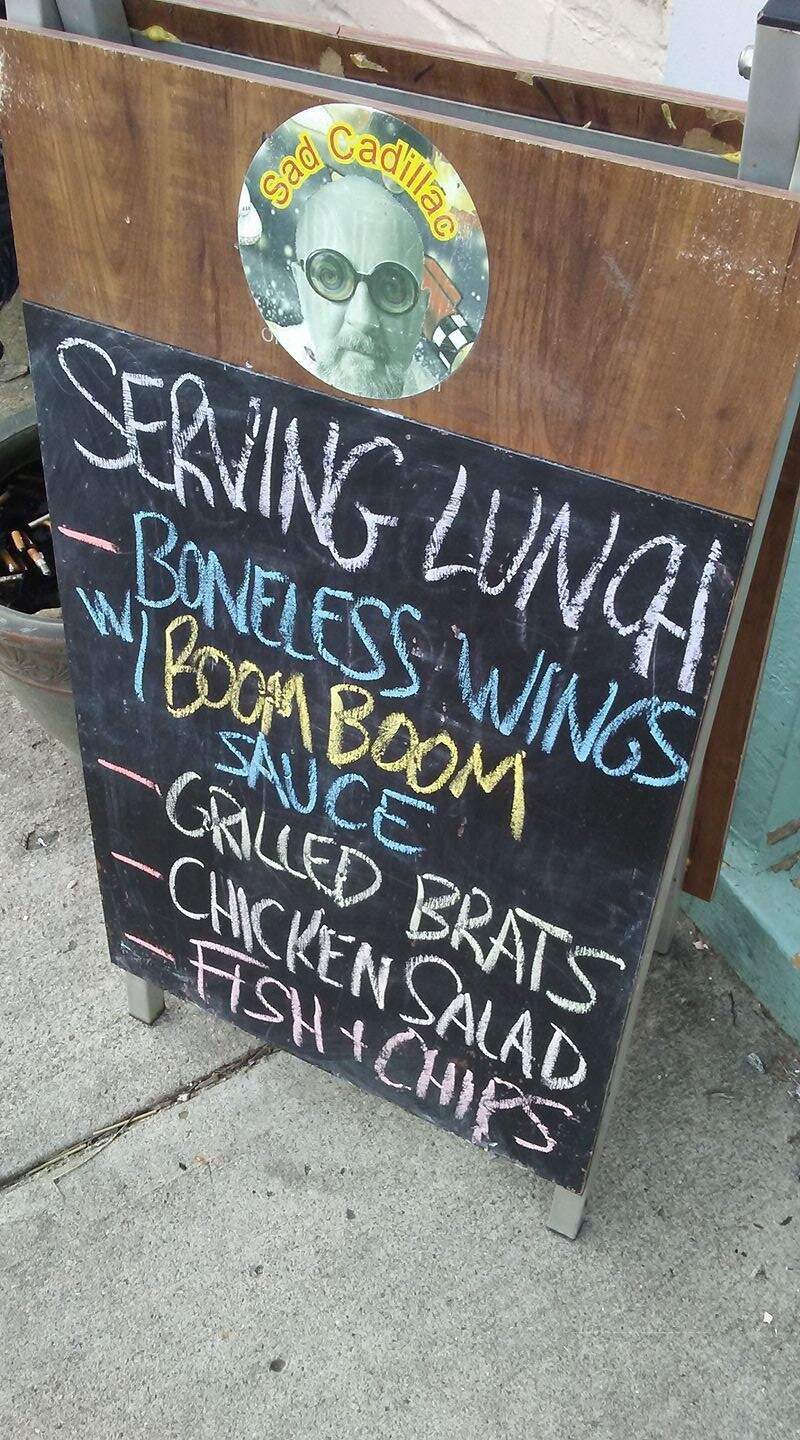 Sad Cadillac
SERVING LUNCH
- BONELESS WINGS
W/ BOOM BOOM
SAUCE
- GRILLED BRATS
- CHICKEN SALAD
- FISH + CHIPS